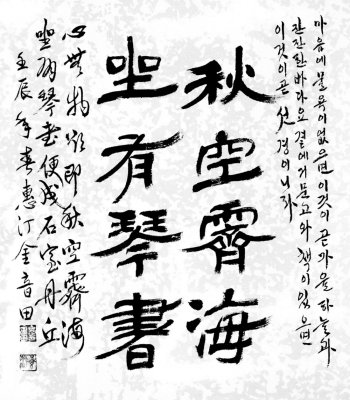 마음에 물욕이 없으면 이것이 곧 가을 하늘과
잔잔한 바다요 곁에 거문고와 책이 있으면
이것이 곧 선경이니라
秋空霽海
坐有琴書
心無物欲即秋空霽海
坐有琴書便成石室丹丘
壬辰年春惠汀金音田